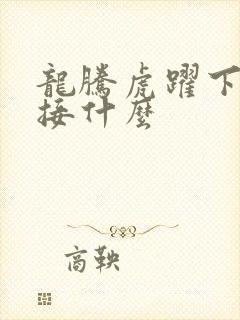 龍騰虎躍下
接什麼
商鞅